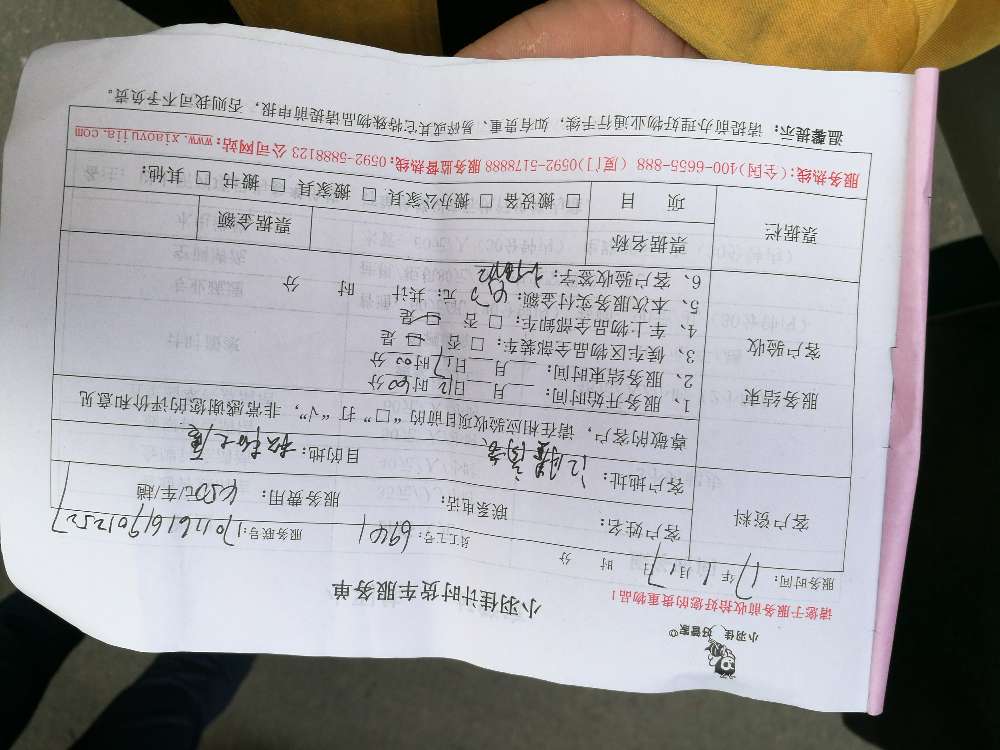 小羽佳 好管家®
小羽佳计时货车服务单
请您于服务前收拾好您的贵重物品！
服务时间：17年6月17日 时 分 员工号：6941 服务联号：
客户资料 客户姓名： 联系电话： 服务费用：650元/车/趟
客户地址： 目的地：
尊敬的客户，请在相应验收项目前的“□”打“√”，非常感谢您的评价和意见
服务结束
客户验收
1、服务开始时间：___月___日12时00分
2、服务结束时间：___月___日17时00分
3、候车区物品全部装车：□ 否 □ 是
4、车上物品全部卸车：□ 否 □ 是
5、本次服务实付金额：650元；共计 时 分
6、客户验收签字：
票据栏 票据名称 票据金额
项 目 □ 搬设备 □ 搬办公家具 □ 搬家具 □ 搬书 □ 其他：
服务热线：(全国)400-6655-888 (厦门)0592-5178888 服务监督热线：0592-5888123 公司网站：www.xiaoyujia.com
温馨提示：请提前办理好物业通行手续，如有贵重、易碎或其它特殊物品请提前申报，否则我司不予负责。